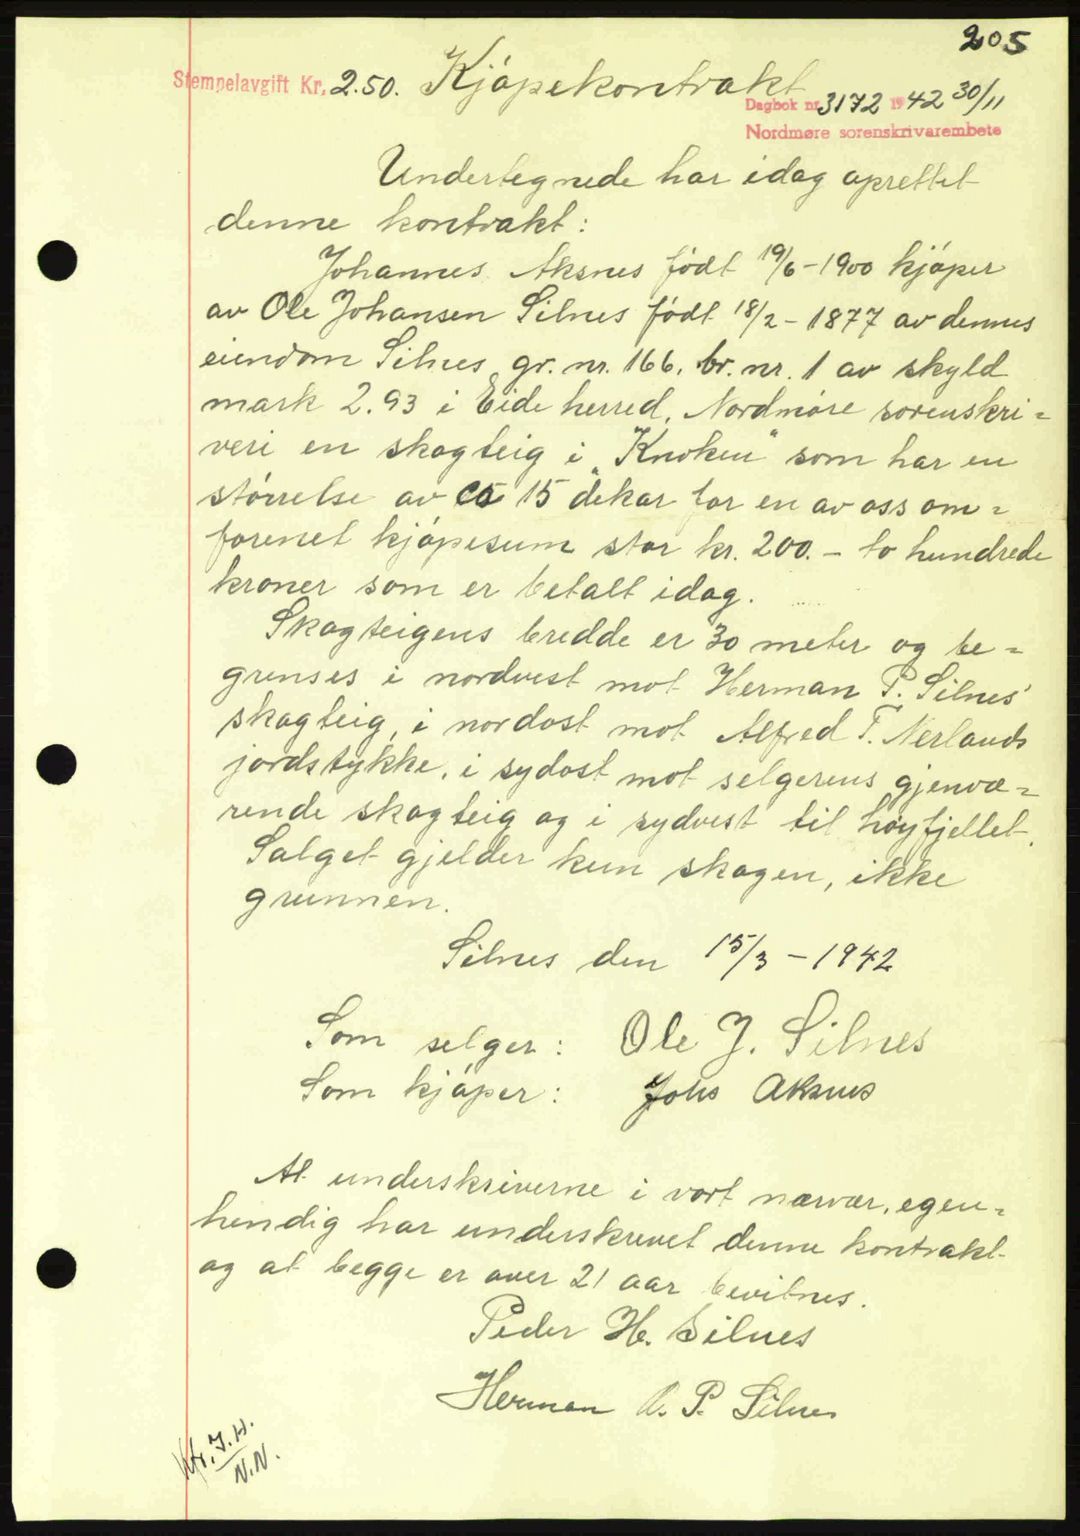 205
Stempelavgift Kr. 2.50. Kjøpekontrakt
Dagbok nr. 3172 1942 30/11
Nordmøre sorenskrivarembete
Undertegnede har idag oprettet
denne kontrakt:
Johannes Aksnes født 19/6-1900 kjøper
av Ole Johansen Silnes født 18/2-1877 av dennes
eiendom Silnes gr. nr. 166. br. nr. 1 av skyld
mark 2.93 i Eide herred, Nordmøre sorenskri=
veri en skogteig i "Knoken" som har en
størrelse av ca 15 dekar for en av oss om=
forenet kjøpesum stor kr. 200.- to hundrede
kroner som er betalt idag.
Skogteigens bredde er 30 meter og be=
grenses i nordvest mot Herman P. Silnes'
skogteig, i nordost mot Alfred T. Nerlands
jordstykke, i sydost mot selgerens gjenvæ=
rende skogteig og i sydvest til høyfjellet.
Salget gjelder kun skogen, ikke
grunnen.
Silnes den 15/3-1942
Som selger: Ole J. Silnes
Som kjøper: Johs Aksnes
At underskriverne i vort nærvær, egen=
hendig har underskrevet denne kontrakt
og at begge er over 21 aar bevitnes.
Peder H. Silnes
Herman A. P. Silnes
Ktr. J.H.
N.N.